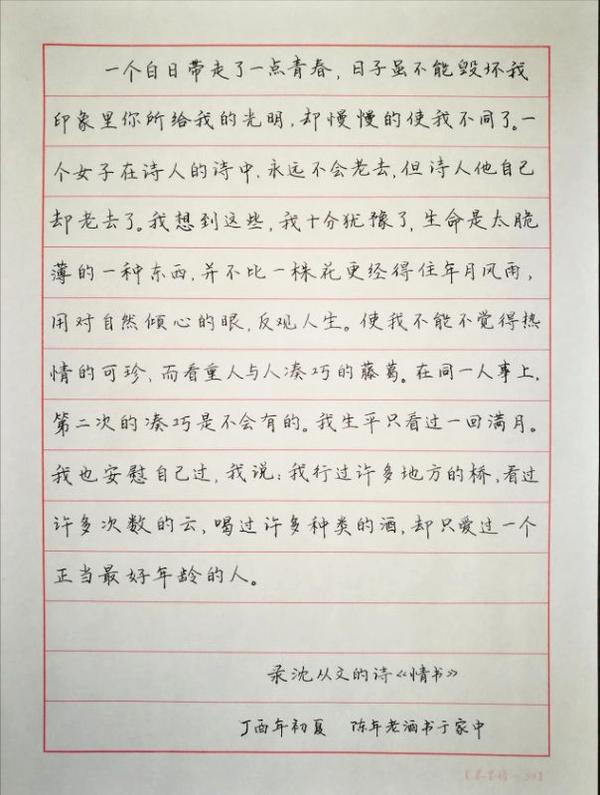 一个白日带走了一点青春，日子虽不能毁坏我
印象里你所给我的光明，却慢慢的使我不同了。一
个女子在诗人的诗中，永远不会老去，但诗人他自己
却老去了。我想到这些，我十分犹豫了，生命是太脆
薄的一种东西，并不比一株花更经得住年月风雨，
用对自然倾心的眼，反观人生。使我不能不觉得热
情的可珍，而看重人与人凑巧的藤葛。在同一人事上，
第二次的凑巧是不会有的。我生平只看过一回满月。
我也安慰自己过，我说：我行过许多地方的桥，看过
许多次数的云，喝过许多种类的酒，却只爱过一个
正当最好年龄的人。
录沈从文的诗《情书》
丁酉年初夏 陈年老酒书于家中